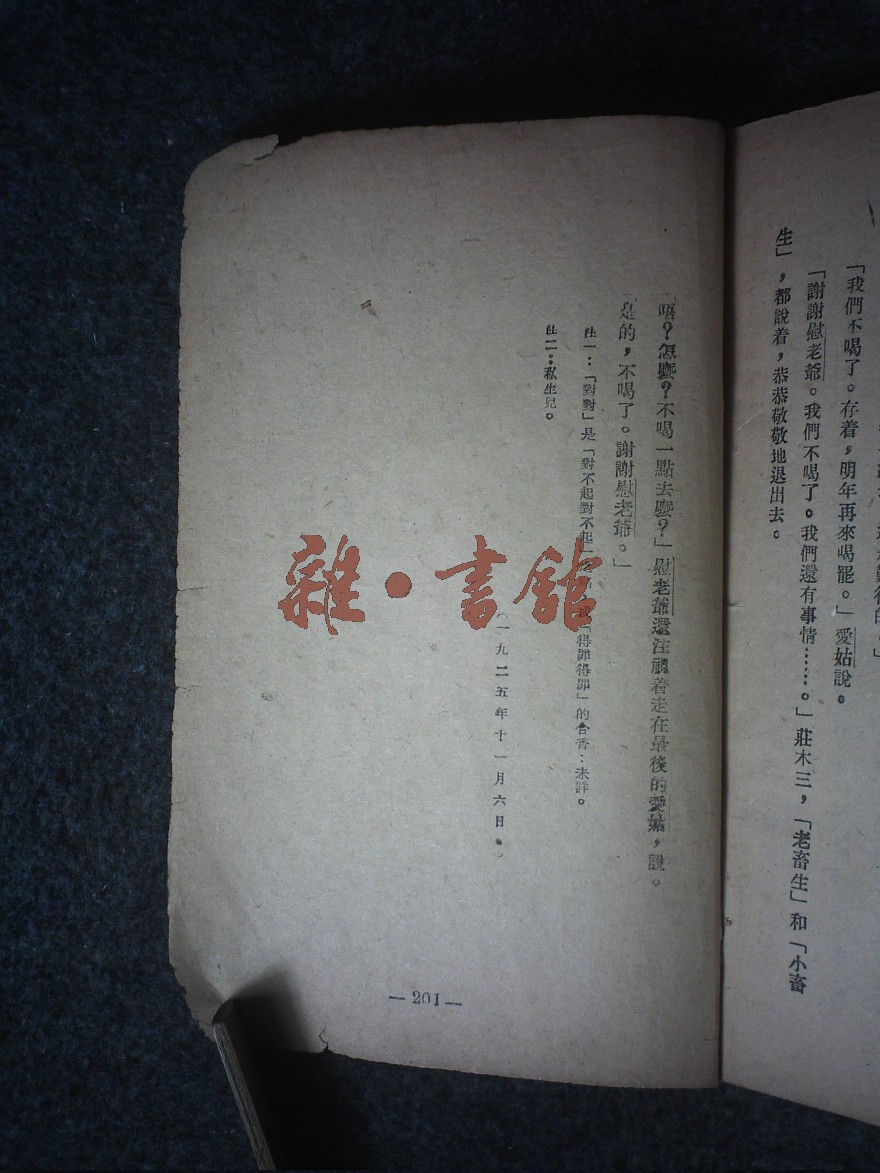 「我們不喝了。存着，明年再來喝罷。」愛姑說。
「謝謝慰老爺。我們不喝了。我們還有事情……。」莊木三，「老畜生」和「小畜
生」，都說着，恭恭敬敬地退出去。
「唔？怎麽？不喝一點去麽？」慰老爺還注視着走在最後的愛姑，說。
「是的，不喝了。謝謝慰老爺。」
註一：「對對」是「對不起對不起」「得罪得罪」的合音：未詳。
註二：私生兒。
（一九二五年十一月六日。）
—201—
雜·書館